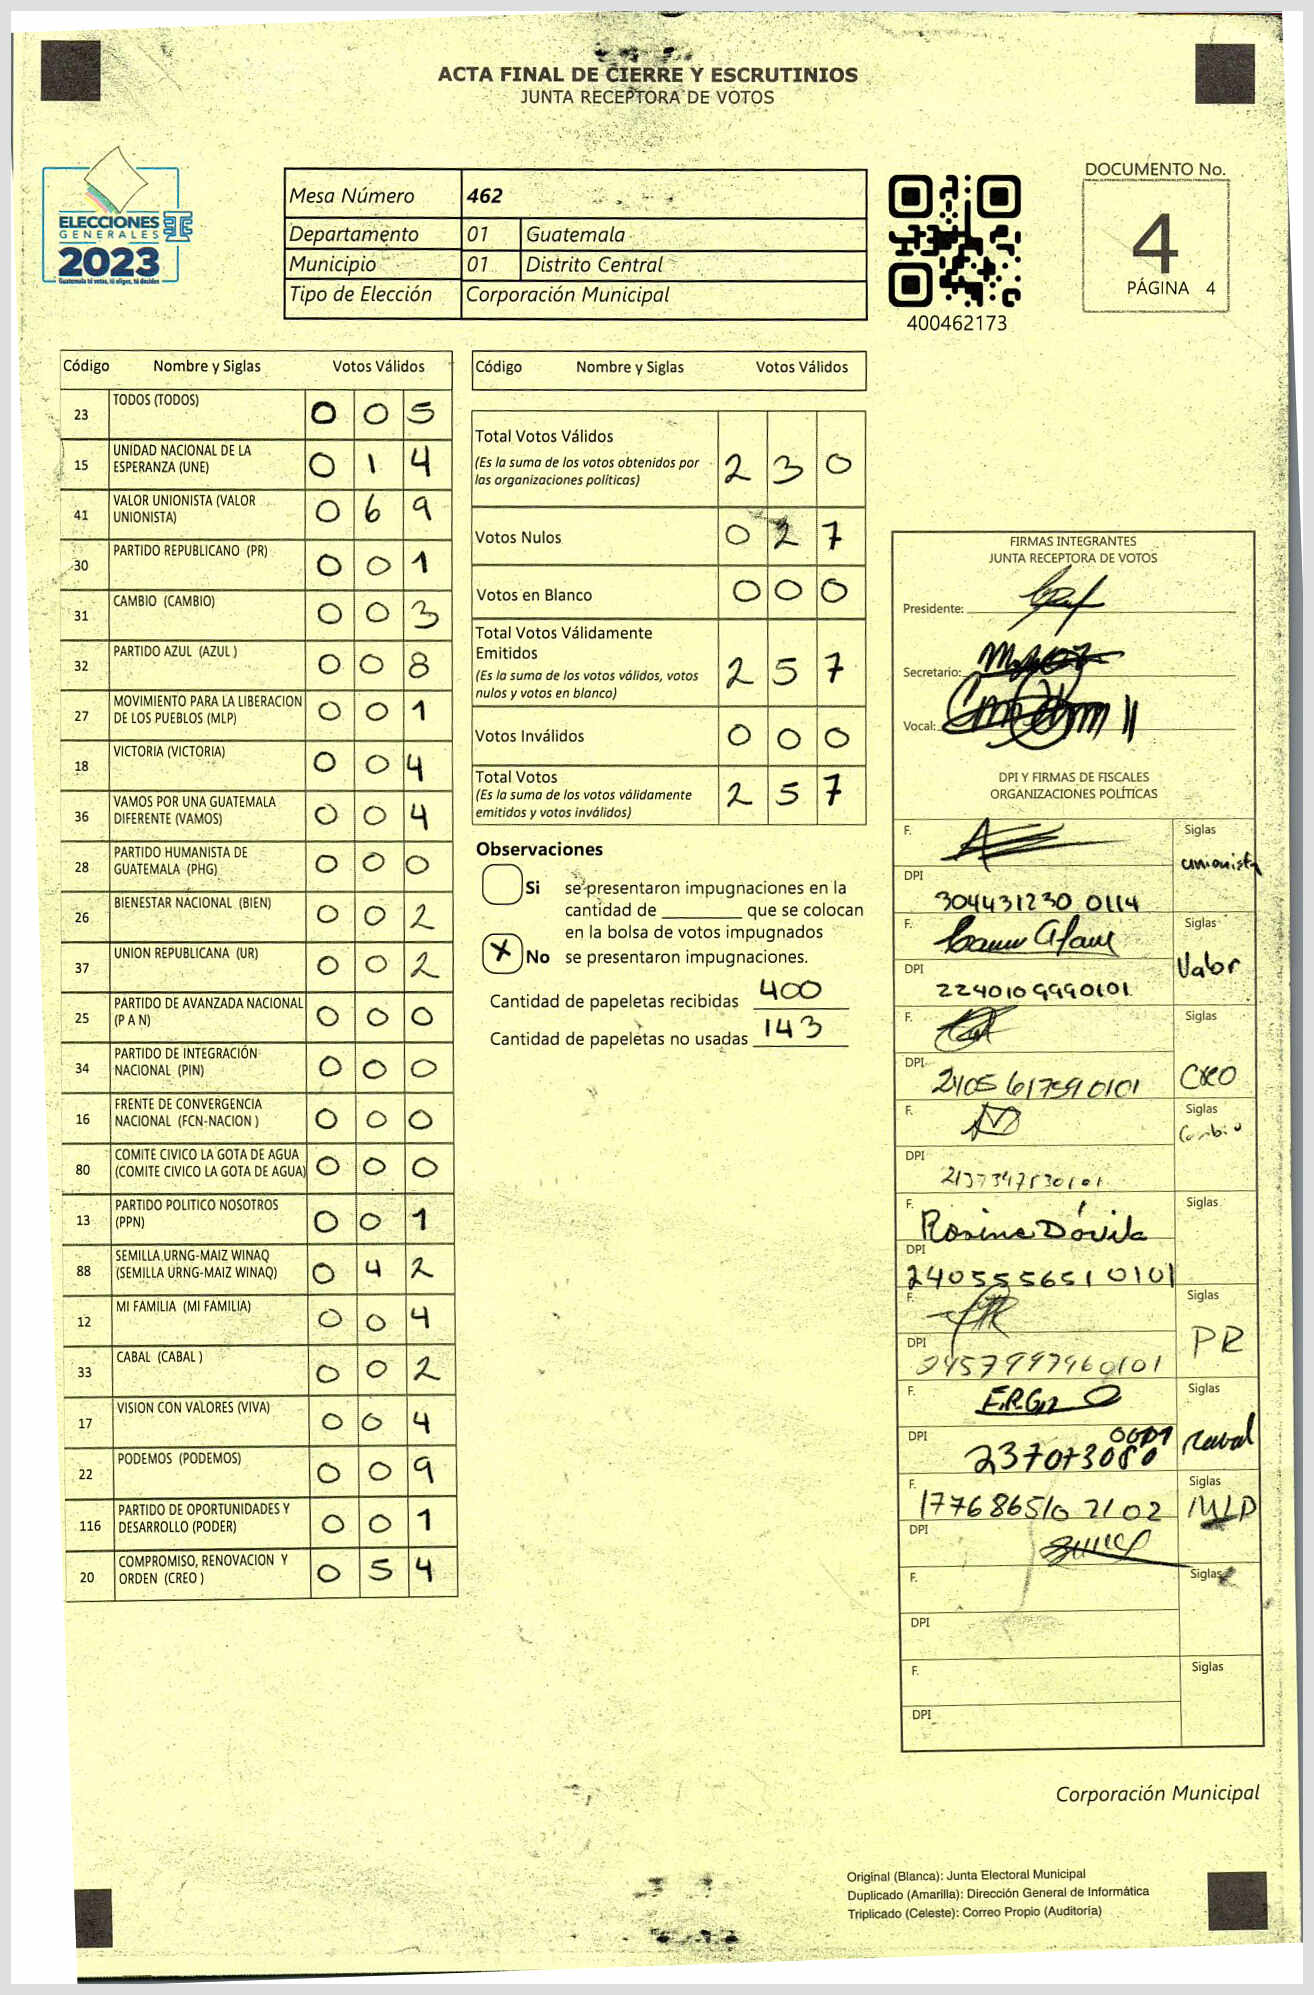 ACTA FINAL DE CIERRE Y ESCRUTINIOS
JUNTA RECEPTORA DE VOTOS
ELECCIONES
GENERALES
2023
Guatemala tú votas, tú eliges, tú decides
Mesa Número 462
Departamento 01 Guatemala
Municipio 01 Distrito Central
Tipo de Elección Corporación Municipal
400462173
DOCUMENTO No.
4
PÁGINA 4
Código Nombre y Siglas Votos Válidos
23 TODOS (TODOS) 0 0 5
15 UNIDAD NACIONAL DE LA
ESPERANZA (UNE) 0 1 4
41 VALOR UNIONISTA (VALOR
UNIONISTA) 0 6 9
30 PARTIDO REPUBLICANO (PR) 0 0 1
31 CAMBIO (CAMBIO) 0 0 3
32 PARTIDO AZUL (AZUL ) 0 0 8
27 MOVIMIENTO PARA LA LIBERACION
DE LOS PUEBLOS (MLP) 0 0 1
18 VICTORIA (VICTORIA) 0 0 4
36 VAMOS POR UNA GUATEMALA
DIFERENTE (VAMOS) 0 0 4
28 PARTIDO HUMANISTA DE
GUATEMALA (PHG) 0 0 0
26 BIENESTAR NACIONAL (BIEN) 0 0 2
37 UNION REPUBLICANA (UR) 0 0 2
25 PARTIDO DE AVANZADA NACIONAL
(P A N) 0 0 0
34 PARTIDO DE INTEGRACIÓN
NACIONAL (PIN) 0 0 0
16 FRENTE DE CONVERGENCIA
NACIONAL (FCN-NACION ) 0 0 0
80 COMITE CIVICO LA GOTA DE AGUA
(COMITE CIVICO LA GOTA DE AGUA) 0 0 0
13 PARTIDO POLITICO NOSOTROS
(PPN) 0 0 1
88 SEMILLA URNG-MAIZ WINAQ
(SEMILLA URNG-MAIZ WINAQ) 0 4 2
12 MI FAMILIA (MI FAMILIA) 0 0 4
33 CABAL (CABAL ) 0 0 2
17 VISION CON VALORES (VIVA) 0 0 4
22 PODEMOS (PODEMOS) 0 0 9
116 PARTIDO DE OPORTUNIDADES Y
DESARROLLO (PODER) 0 0 1
20 COMPROMISO, RENOVACION Y
ORDEN (CREO ) 0 5 4
Código Nombre y Siglas Votos Válidos
Total Votos Válidos
(Es la suma de los votos obtenidos por
las organizaciones políticas) 2 3 0
Votos Nulos 0 2 7
Votos en Blanco 0 0 0
Total Votos Válidamente
Emitidos
(Es la suma de los votos válidos, votos
nulos y votos en blanco) 2 5 7
Votos Inválidos 0 0 0
Total Votos
(Es la suma de los votos válidamente
emitidos y votos inválidos) 2 5 7
Observaciones
Si se presentaron impugnaciones en la
cantidad de ________ que se colocan
en la bolsa de votos impugnados
X No se presentaron impugnaciones.
Cantidad de papeletas recibidas 400
Cantidad de papeletas no usadas 143
FIRMAS INTEGRANTES
JUNTA RECEPTORA DE VOTOS
Presidente:
Secretario:
Vocal:
DPI Y FIRMAS DE FISCALES
ORGANIZACIONES POLÍTICAS
F. Siglas
unionista
DPI
304431230 0114
F. Siglas
Valor
DPI
2240109990101
F. Siglas
DPI
2405617590101 Creo
F. Siglas
Cambio
DPI
F. Siglas
Rosina Dávila
DPI
2405556510101
F. Siglas
PR
DPI
F. Siglas
DPI
F. Siglas
1776865102102
DPI
F. Siglas
DPI
F. Siglas
DPI
Corporación Municipal
Original (Blanca): Junta Electoral Municipal
Duplicado (Amarilla): Dirección General de Informática
Triplicado (Celeste): Correo Propio (Auditoría)